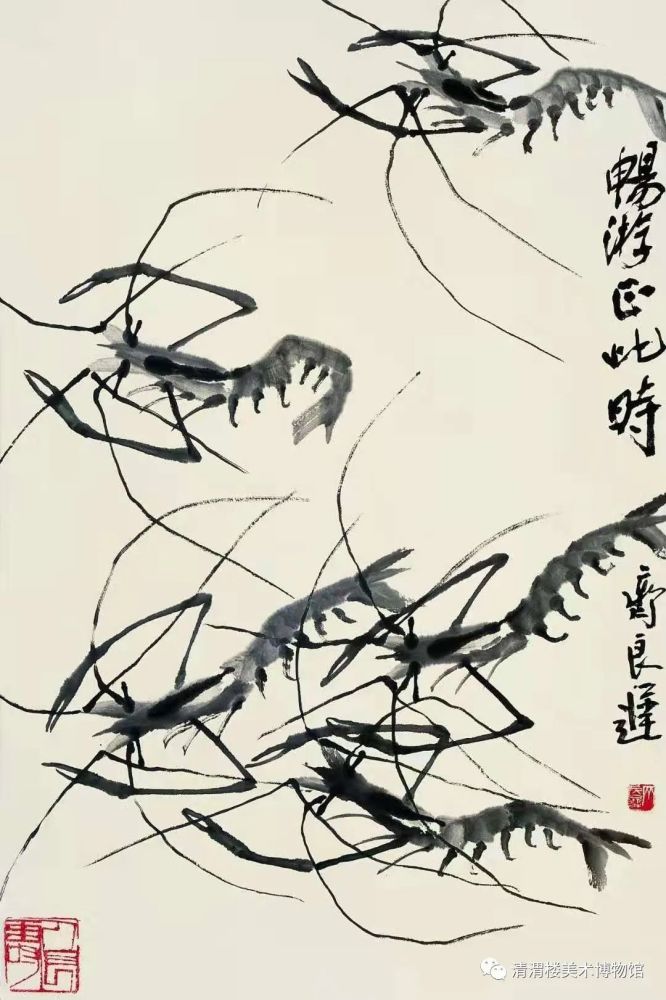 暢游正此時
齊良遲
人長壽
清渭楼美术博物馆